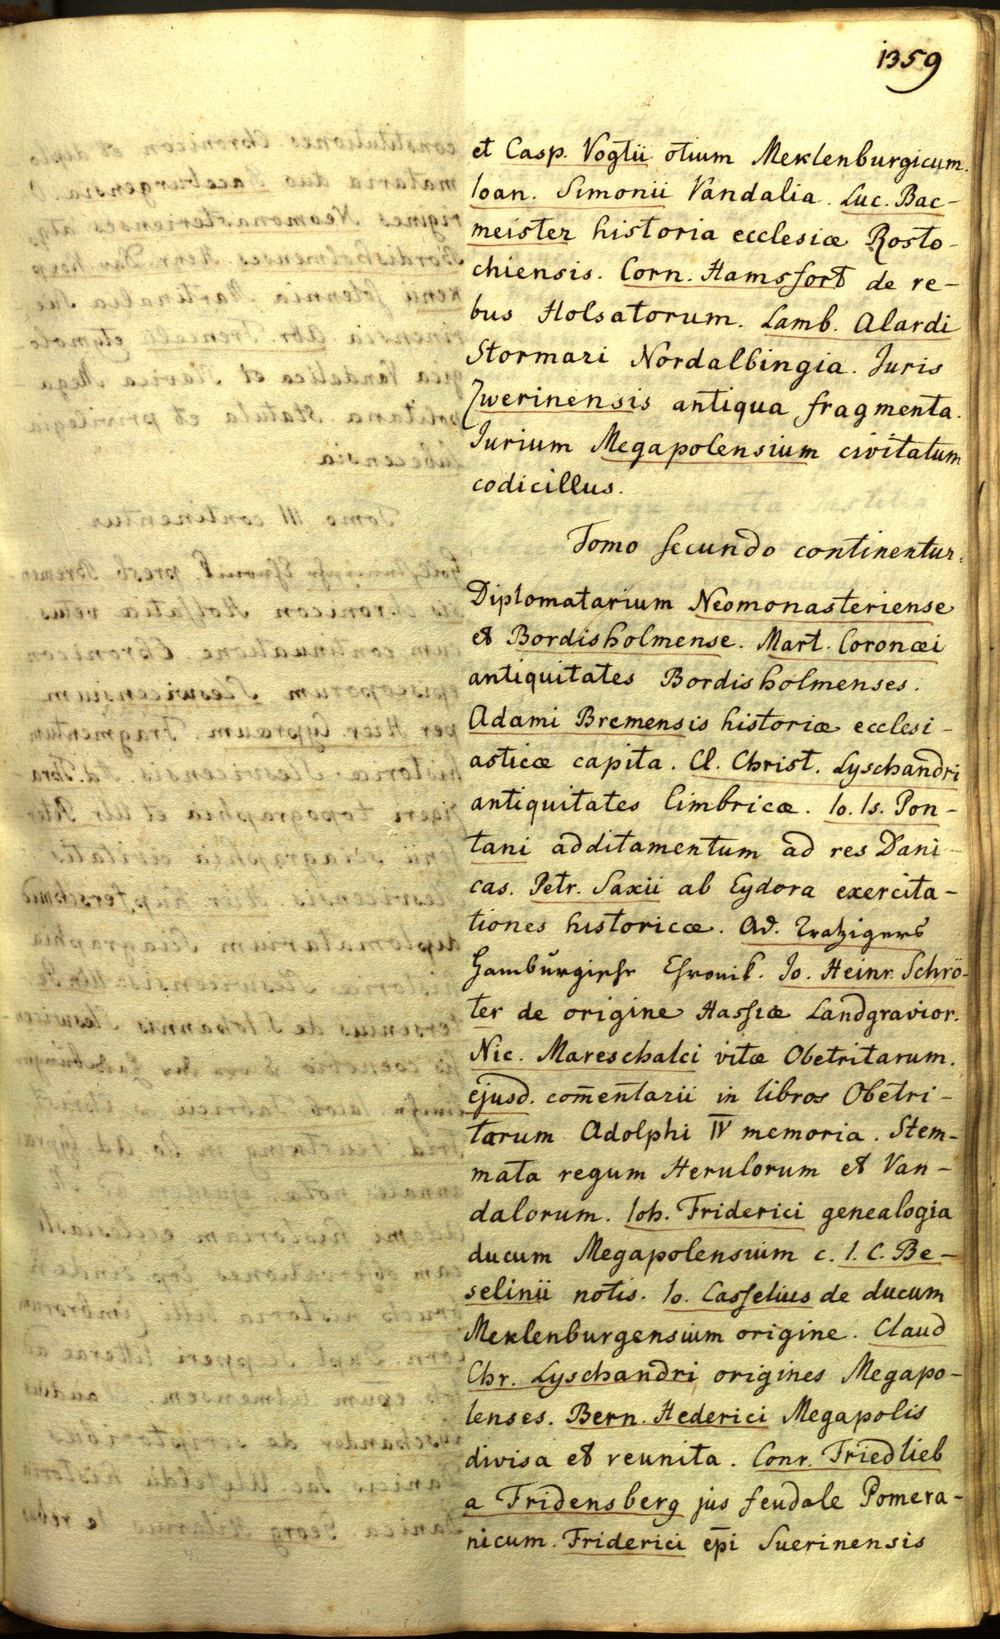 1359
et Casp. Vogtii otium Meklenburgicum.
Ioan. Simonii Vandalia. Luc. Bac-
meister historia ecclesiæ Rosto-
chiensis. Corn. Hamsfort de re-
bus Holsatorum. Lamb. Alardi
Stormari Nordalbingia. Juris
Zwerinensis antiqua fragmenta.
Jurium Megapolensium civitatum
codicillus.
Tomo secundo continentur.
Diplomatarium Neomonasteriense
et Bordisholmense. Mart. Coronæi
antiquitates Bordisholmenses.
Adami Bremensis historiæ ecclesi-
asticæ capita. Cl. Christ. Lyschandri
antiquitates Cimbricæ. Io. Is. Pon-
tani additamentum ad res Dani-
cas. Petr. Saxii ab Eydora exercita-
tiones historicæ. Ad. Tratzigers
Hamburgische Chronik. Jo. Heinr. Schrö-
ter de origine Hassiæ Landgravior.
Nic. Mareschalci vitæ Obetritarum.
ejusd. com̄entarii in libros Obetri-
tarum Adolphi IV memoria. Stem-
mata regum Herulorum et Van-
dalorum. Ioh. Friderici genealogia
ducum Megapolensium c. I. C. Be-
selinii notis. Io. Casselius de ducum
Meklenburgensium origine. Claud
Chr. Lyschandri origines Megapo-
lenses. Bern. Hederici Megapolis
divisa et reunita. Conr. Friedlieb
a Fridensberg jus feudale Pomera-
nicum. Friderici ep̄i Suerinensis